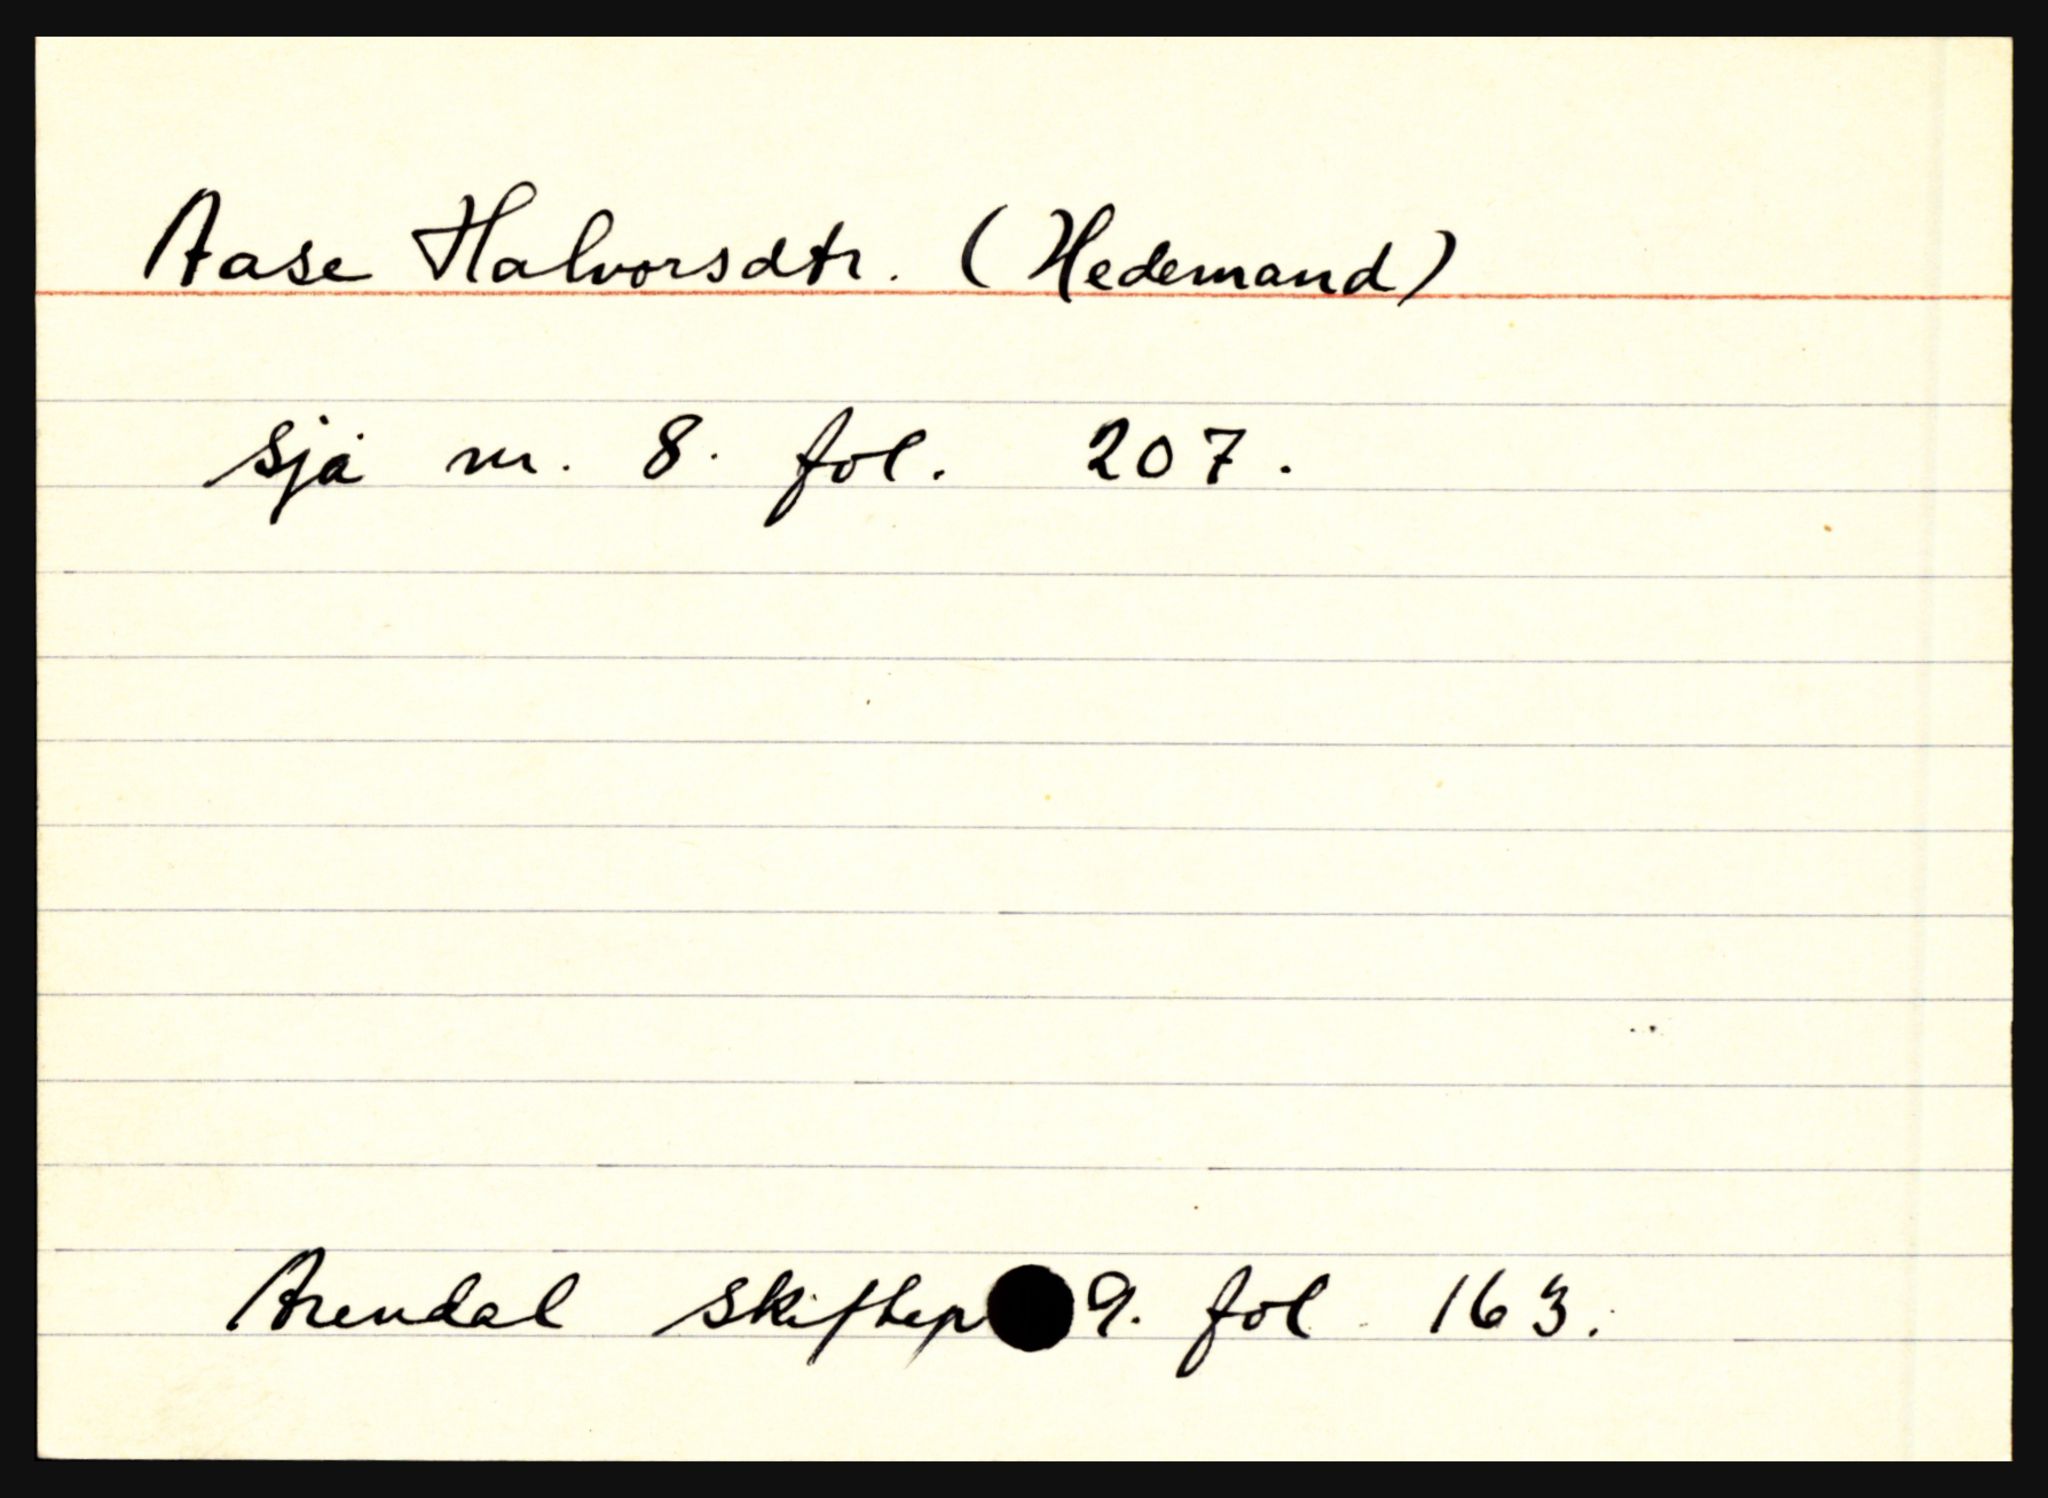 Aase Halvorsdtr. (Hedemand)
sjå nr. 8. fol. 207.
Arendal skiftep 9. fol 163.